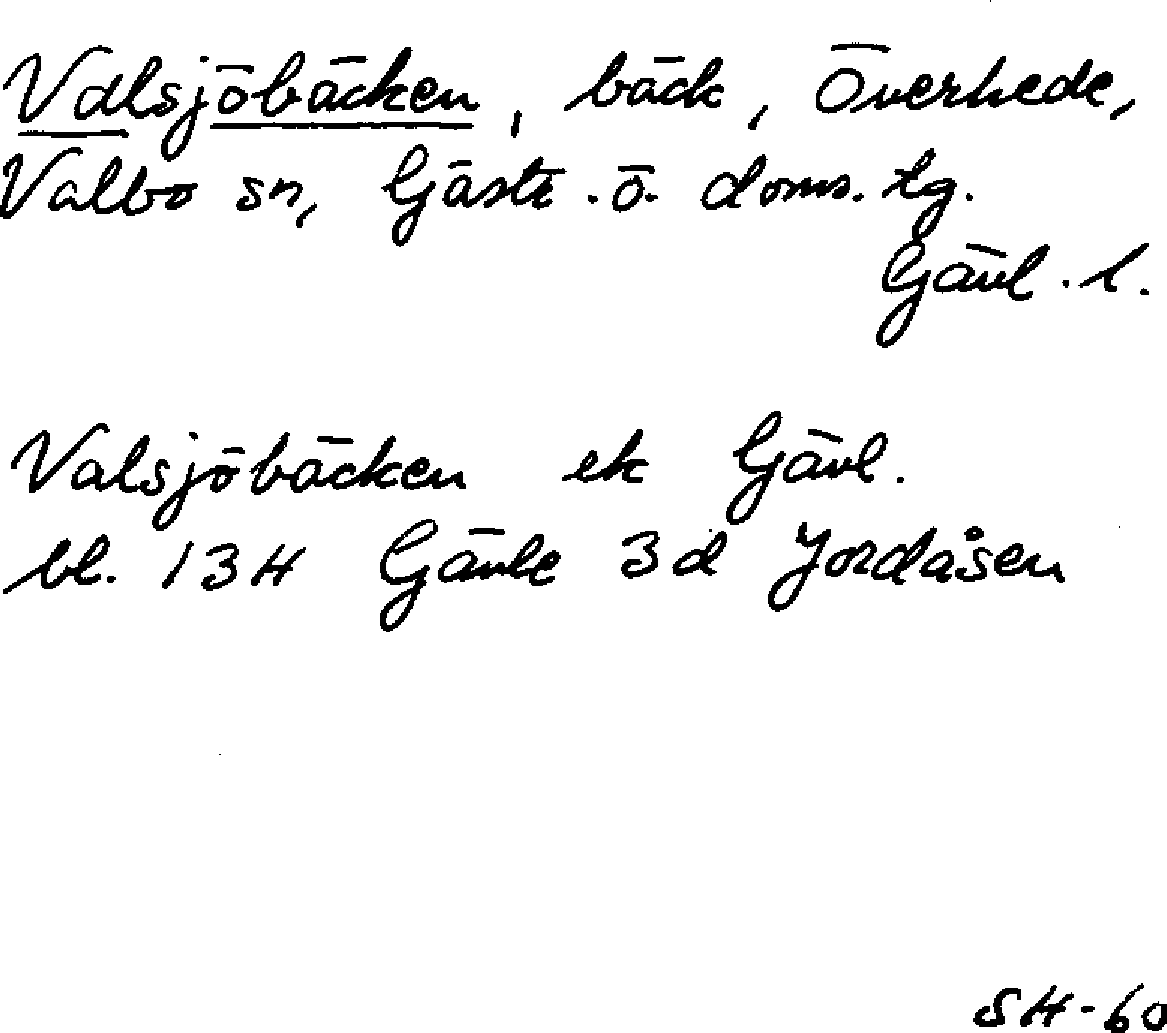 Valsjöbäcken, bäck, Överhede,
Valbo sn, Gästr. ö. doms. tg.
Gävl. l.
Valsjöbäcken ek Gävl.
bl. 13H Gävle 3d Jordåsen
SH-60